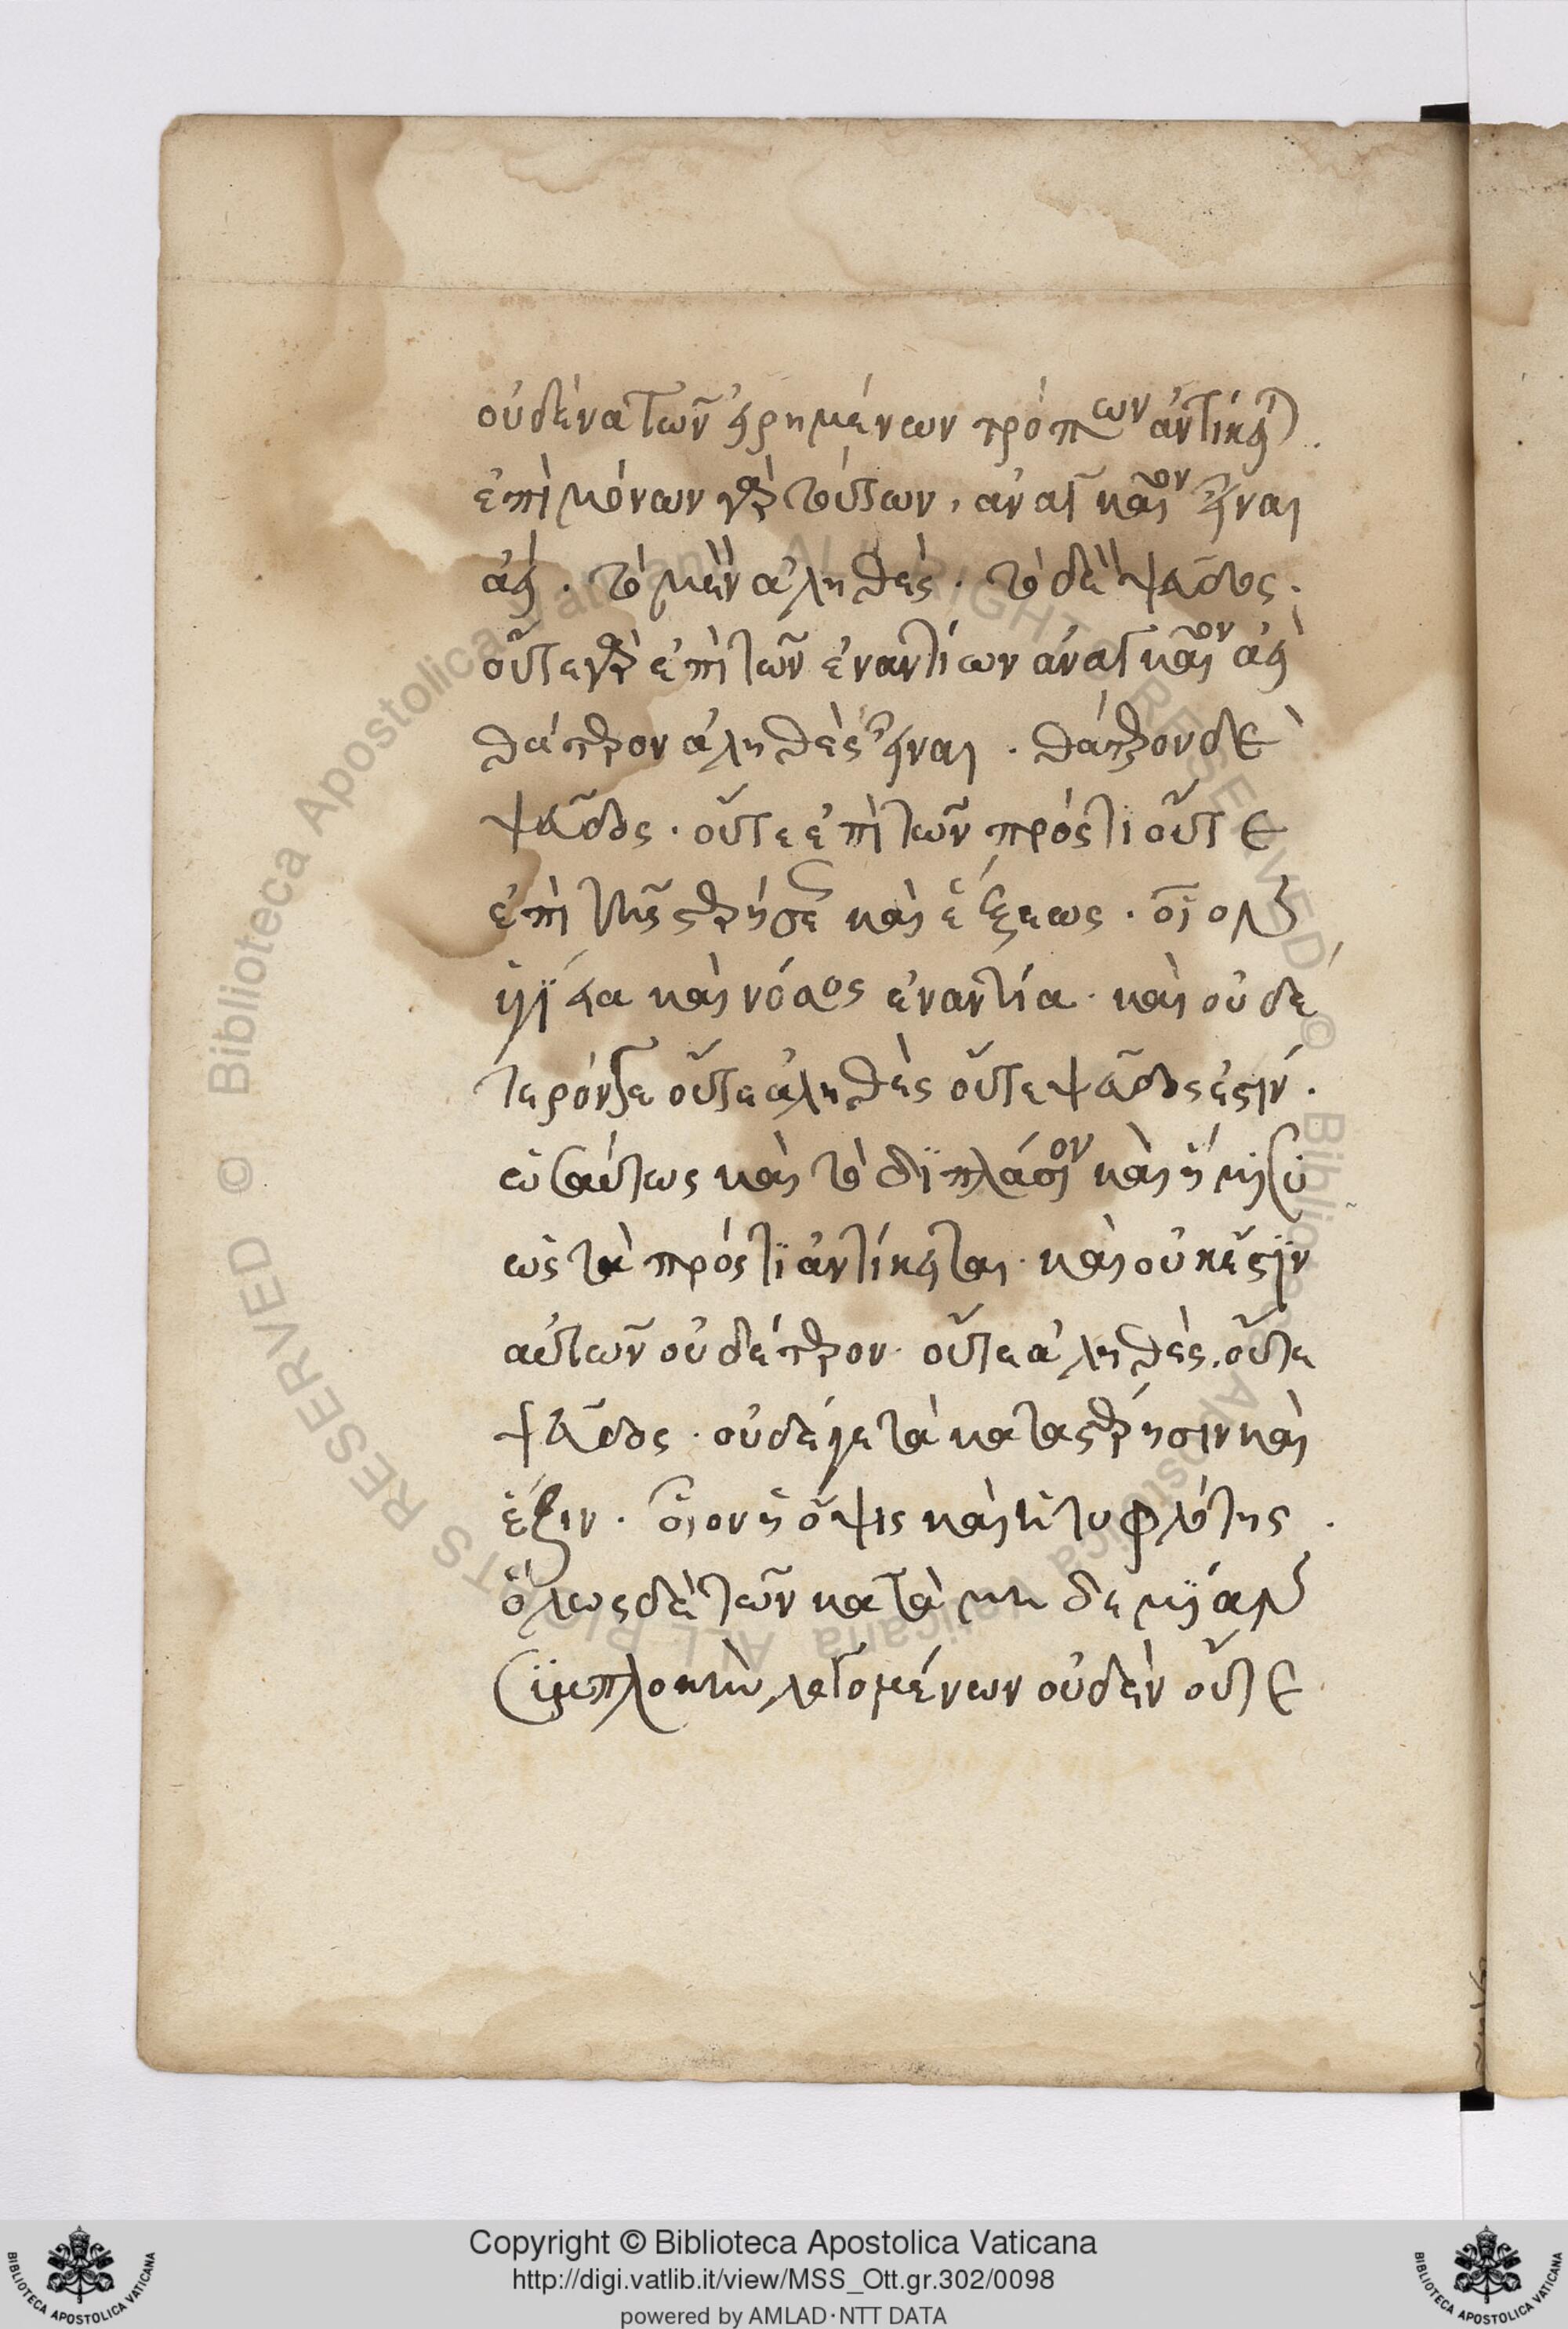 οὐδένα τῶν εἰρημένων τρόπων ἀντίκειται.
ἐπὶ μόνων γὰρ τούτων, ἀναγκαῖον εἶναι
ἀεί. τὸ μὲν ἀληθές. τὸ δὲ ψεῦδος.
οὔτε γὰρ ἐπὶ τῶν ἐναντίων ἀναγκαῖον ἀεὶ
θάτερον ἀληθὲς εἶναι. θάτερον δὲ
ψεῦδος. οὔτε ἐπὶ τῶν πρός τι οὔτε
ἐπὶ τῆς στερήσεως καὶ ἕξεως. οἷον
ὑγίεια καὶ νόσος ἐναντία. καὶ οὐδέ
τερόν γε οὔτε ἀληθὲς οὔτε ψεῦδός ἐστιν.
ὡσαύτως καὶ τὸ διπλάσιον καὶ ἥμισυ
ὡς τὰ πρός τι ἀντίκειται. καὶ οὐκ ἔστιν
αὐτῶν οὐδέτερον. οὔτε ἀληθές. οὔτε
ψεῦδος. οὐδέ γε τὰ κατὰ στέρησιν καὶ
ἕξιν. οἷον ἡ ὄψις καὶ ἡ τυφλότης.
ὅλως δὲ τῶν κατὰ μηδεμίαν
συμπλοκὴν λεγομένων οὐδὲν οὔτε
Copyright © Biblioteca Apostolica Vaticana
http://digi.vatlib.it/view/MSS_Ott.gr.302/0098
powered by AMLAD·NTT DATA
BIBLIOTECA APOSTOLICA VATICANA
BIBLIOTECA APOSTOLICA VATICANA
© Biblioteca Apostolica Vaticana ALL RIGHTS RESERVED
© Biblioteca Apostolica Vaticana ALL RIGHTS RESERVED